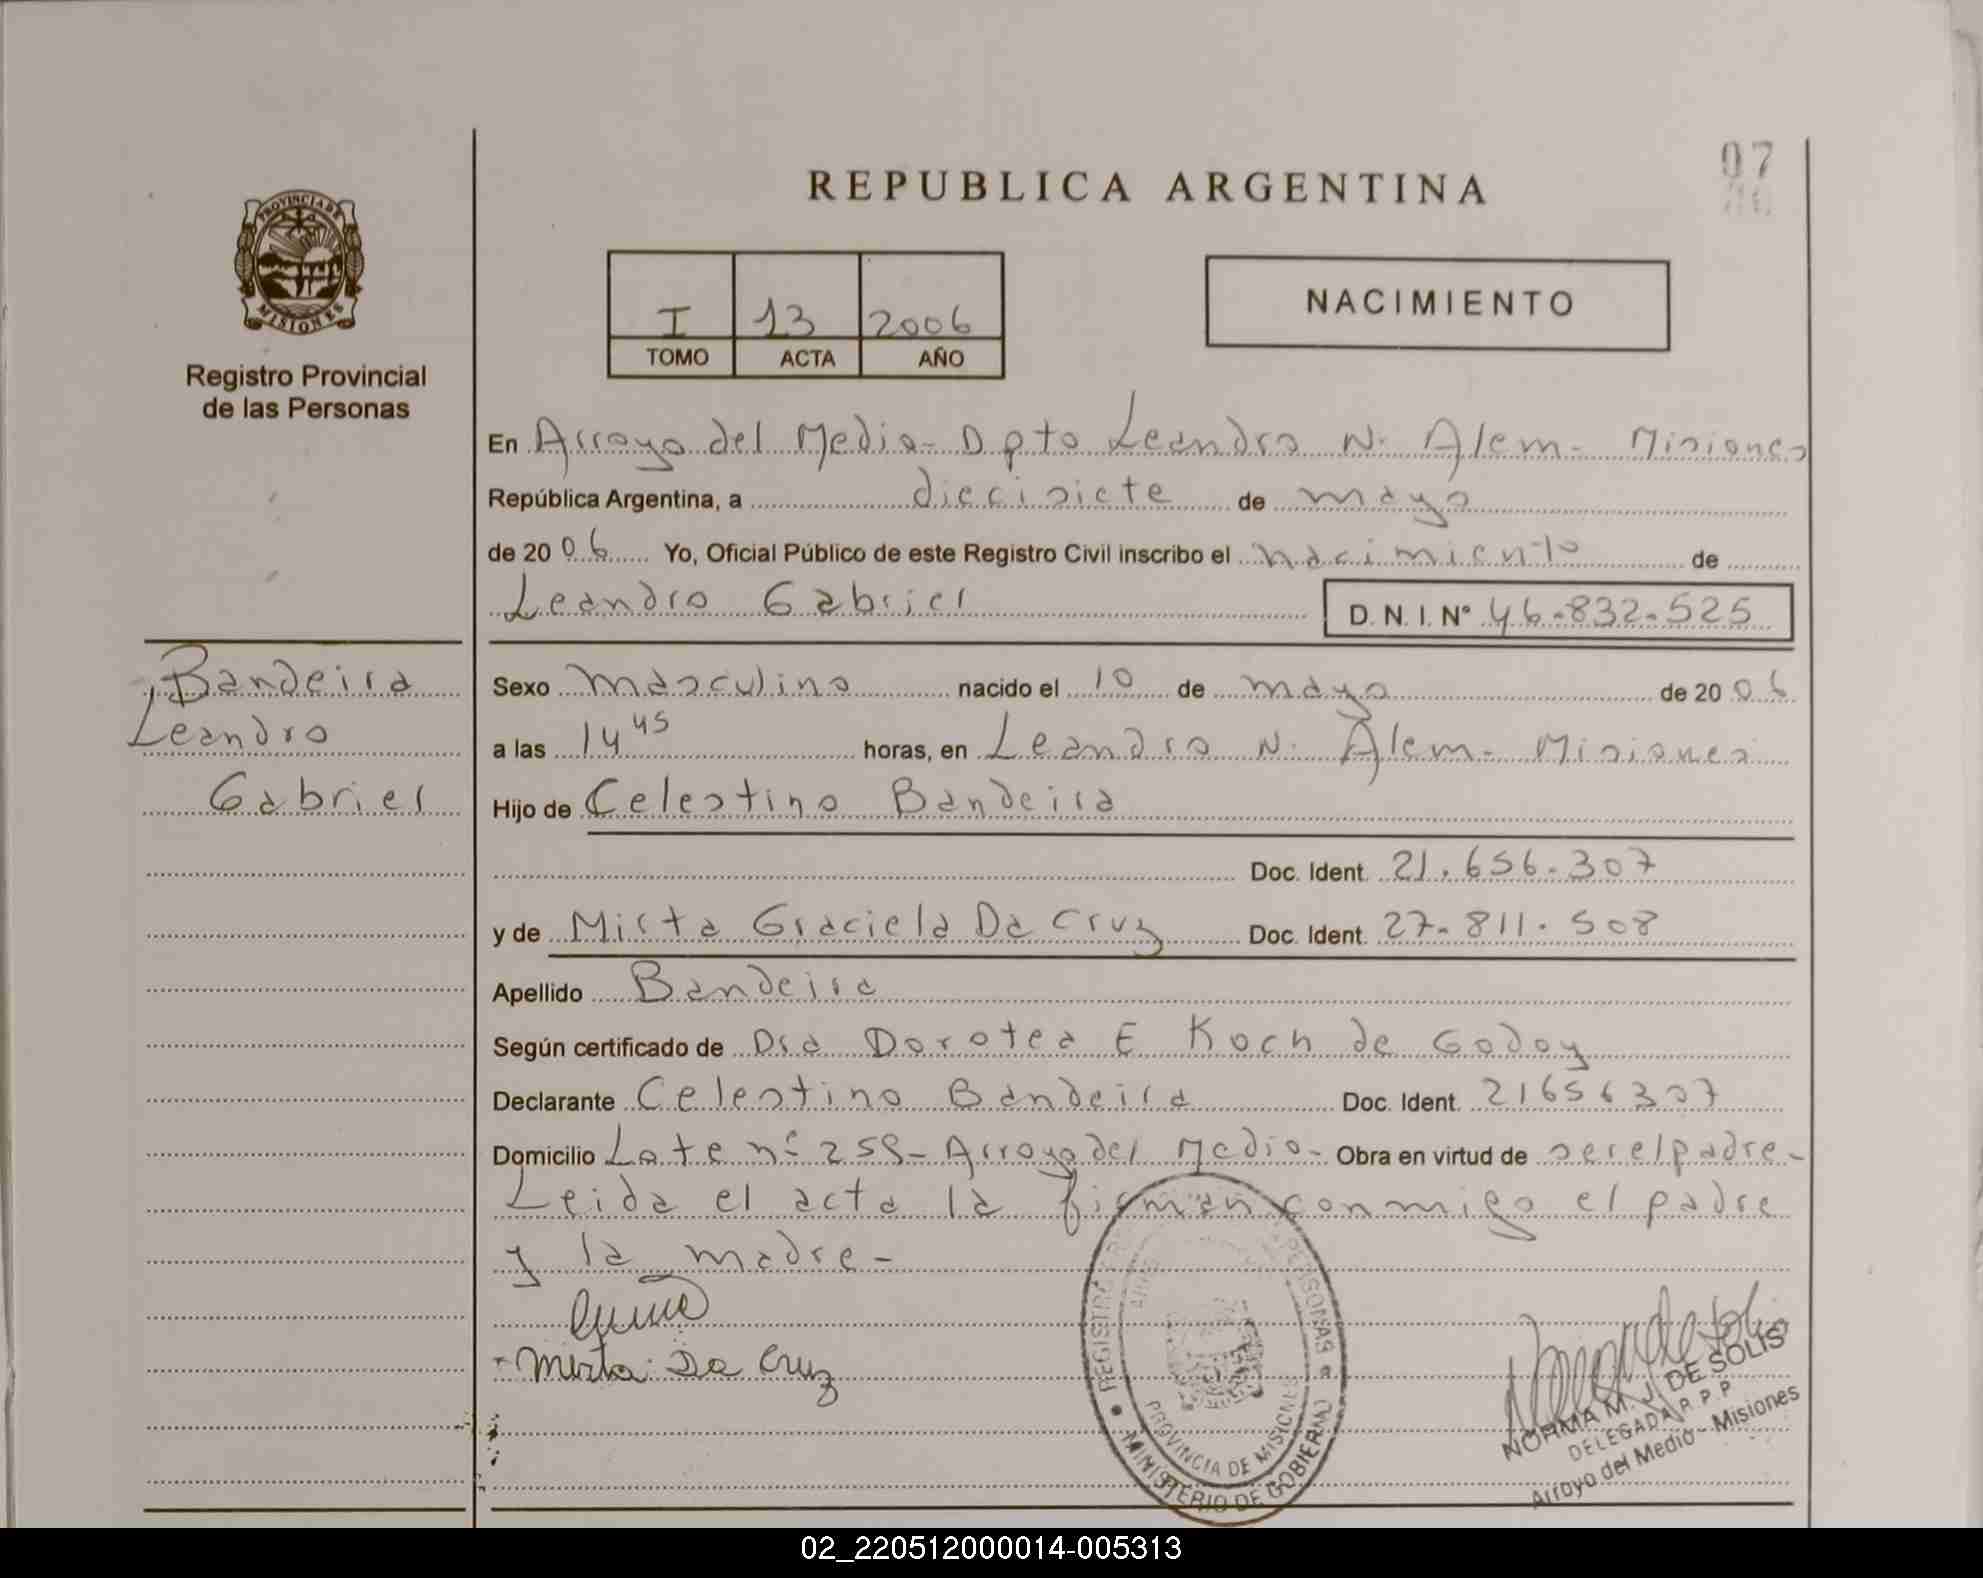 REPUBLICA ARGENTINA
07
PROVINCIA DE
MISIONES
Registro Provincial
de las Personas
I 13 2006
TOMO ACTA AÑO
NACIMIENTO
En Arroyo del Medio - Dpto Leandro N. Alem - Misiones
República Argentina, a diecisiete de mayo
de 2006 Yo, Oficial Público de este Registro Civil inscribo el nacimiento de
Leandro Gabriel D. N. I. N° 46.832.525
Bandeira
Leandro
Gabriel
Sexo masculino nacido el 10 de mayo de 2006
a las 14 45 horas, en Leandro N. Alem - Misiones
Hijo de Celestino Bandeira
Doc. Ident. 21.656.307
y de Mirta Graciela Da Cruz Doc. Ident. 27.811.508
Apellido Bandeira
Según certificado de Dra Dorotea E Koch de Godoy
Declarante Celestino Bandeira Doc. Ident. 21656307
Domicilio Lote nº 259 - Arroyo del Medio - Obra en virtud de ser el padre -
Leida el acta la firman conmigo el padre
y la madre -
Mirta Da Cruz
REGISTRO PERSONAS
PROVINCIA DE MISIONES
MINISTERIO DE GOBIERNO
NORMA M. J. DE SOLIS
DELEGADA R. P. P
Arroyo del Medio - Misiones
02_220512000014-005313